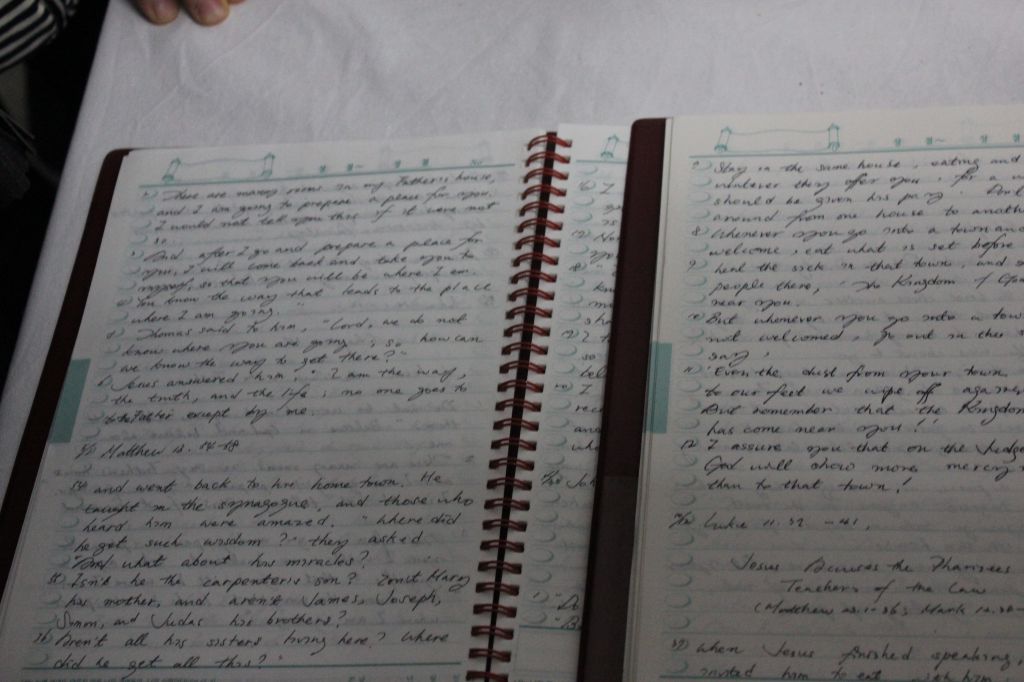 There are many rooms in my Father's house,
and I am going to prepare a place for you.
I would not tell you this if it were not
so.
And after I go and prepare a place for
you, I will come back and take you to
myself, so that you will be where I am.
You know the way that leads to the place
where I am going."
Thomas said to him, "Lord, we do not
know where you are going; so how can
we know the way to get there?"
Jesus answered him, "I am the way,
the truth, and the life; no one goes to
the Father except by me.
Matthew 13. 54-58
54 and went back to his home town. He
taught in the synagogue, and those who
heard him were amazed. "Where did
he get such wisdom?" they asked
"And what about his miracles?
55 Isn't he the carpenter's son? Isn't Mary
his mother, and aren't James, Joseph,
Simon, and Judas his brothers?
56 Aren't all his sisters living here? Where
did he get all this?"
7 Stay in the same house, eating and
whatever they offer you, for a w
should be given his pay. Don't
around from one house to anoth
8 Whenever you go into a town and
welcome, eat what is set before
9 heal the sick in that town, and s
people there, "The Kingdom of God
near you.
10 But whenever you go into a tow
not welcomed, go out in the s
say,
11 "Even the dust from your town
to our feet we wipe off agains
But remember that the Kingdom
has come near you!"
12 I assure you that on the Judge
God will show more mercy
than to that town!
Luke 11. 37 - 41.
Jesus Accuses the Pharisees
Teachers of the Law
(Matthew 23. 1-36; Mark 12. 38-
37 When Jesus finished speaking,
invited him to eat with him